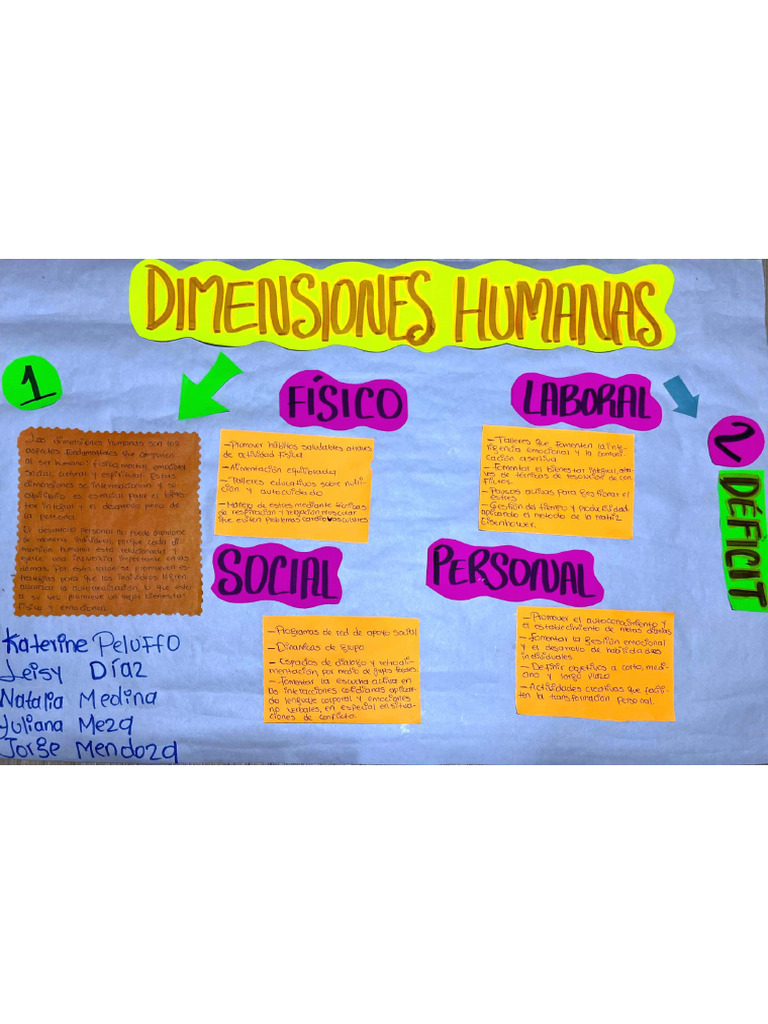 DIMENSIONES HUMANAS
1
Las dimensiones humanas son los
aspectos fundamentales que componen
al ser humano: física, mental, emocional
social, cultural y espiritual. Estas
dimensiones se interrelacionan y su
equilibrio es esencial para el bienes-
tar integral y el desarrollo pleno de
la persona.
El desarrollo personal no puede
de manera individual, porque cada di-
mensión humana está relacionada y
ejerce una influencia importante en las
demás. Por esta razón se promueven es-
trategias para que los individuos logren
alcanzar la autorrealización, lo que esto
a su vez promueve un mejor bienestar
físico y emocional.
FÍSICO
-Promover hábitos saludables através
de actividad física
-Alimentación equilibrada
-Talleres educativos sobre nutri-
ción y autocuidado
-Manejo de estres mediante técnicas
de respiración y relajación muscular
que eviten problemas cardiovasculares
LABORAL
-Talleres que fomenten la inte-
ligencia emocional y la comuni-
cación asertiva
-Fomentar el bienestar integral, atra-
ves de técnicas de resolución de con
flictos.
-Pausas activas para gestionar el
estrés
-Gestión del tiempo y productividad
aplicando el metodo de la matriz
Eisenhower.
2
DÉFICIT
SOCIAL
-Programas de red de apoyo social
-Dinamicas de grupo
-Espacios de dialogo y retroali-
mentación, por medio de grupos focales.
-Fomentar la escucha activa en
las interacciones cotidianas aplican
do lenguaje corporal y emociones
no verbales, en especial en situa-
ciones de conflicto.
PERSONAL
-Promover el autoconocimiento y
el establecimiento de metas diarias
-Fomentar la gestión emocional
y el desarrollo de habilidades
individuales
-Definir objetivos a corto, medi-
ano y largo plazo
-Actividades creativas que facili-
ten la transformación personal.
Katerine Peluffo
Leisy Díaz
Natalia Medina
Yuliana Meza
Jorge Mendoza